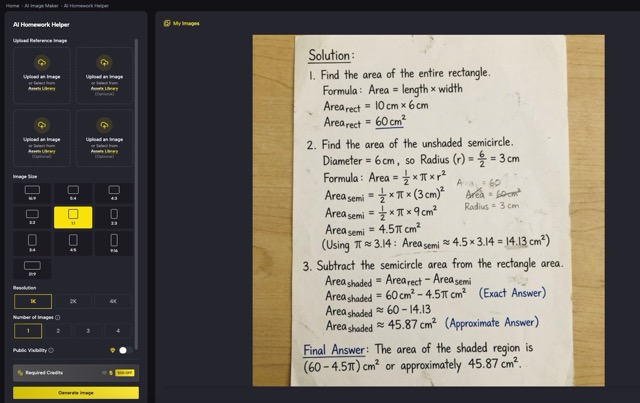 Home › AI Image Maker › AI Homework Helper
AI Homework Helper
Upload Reference Image
Upload an Image
or Select from
Assets Library
Upload an Image
or Select from
Assets Library
(Optional)
Upload an Image
or Select from
Assets Library
(Optional)
Upload an Image
or Select from
Assets Library
(Optional)
Image Size
16:9
5:4
4:3
3:2
1:1
2:3
3:4
4:5
9:16
21:9
Resolution
1K 2K 4K
Number of Images
1 2 3 4
Public Visibility
Required Credits
Generate Image
My Images
Solution:
1. Find the area of the entire rectangle.
Formula: Area = length × width
Area rect = 10 cm × 6 cm
Area rect = 60 cm²
2. Find the area of the unshaded semicircle.
Diameter = 6 cm, so Radius (r) = 6/2 = 3 cm
Formula: Area = 1/2 × π × r²
Area semi = 1/2 × π × (3 cm)²
Area semi = 1/2 × π × 9 cm²
Area semi = 4.5π cm²
(Using π ≈ 3.14: Area semi ≈ 4.5 × 3.14 = 14.13 cm²)
= 60
Area = 60 cm²
Radius = 3 cm
3. Subtract the semicircle area from the rectangle area.
Area shaded = Area rect − Area semi
Area shaded = 60 cm² − 4.5π cm² (Exact Answer)
Area shaded ≈ 60 − 14.13
Area shaded ≈ 45.87 cm² (Approximate Answer)
Final Answer: The area of the shaded region is
(60 − 4.5π) cm² or approximately 45.87 cm².